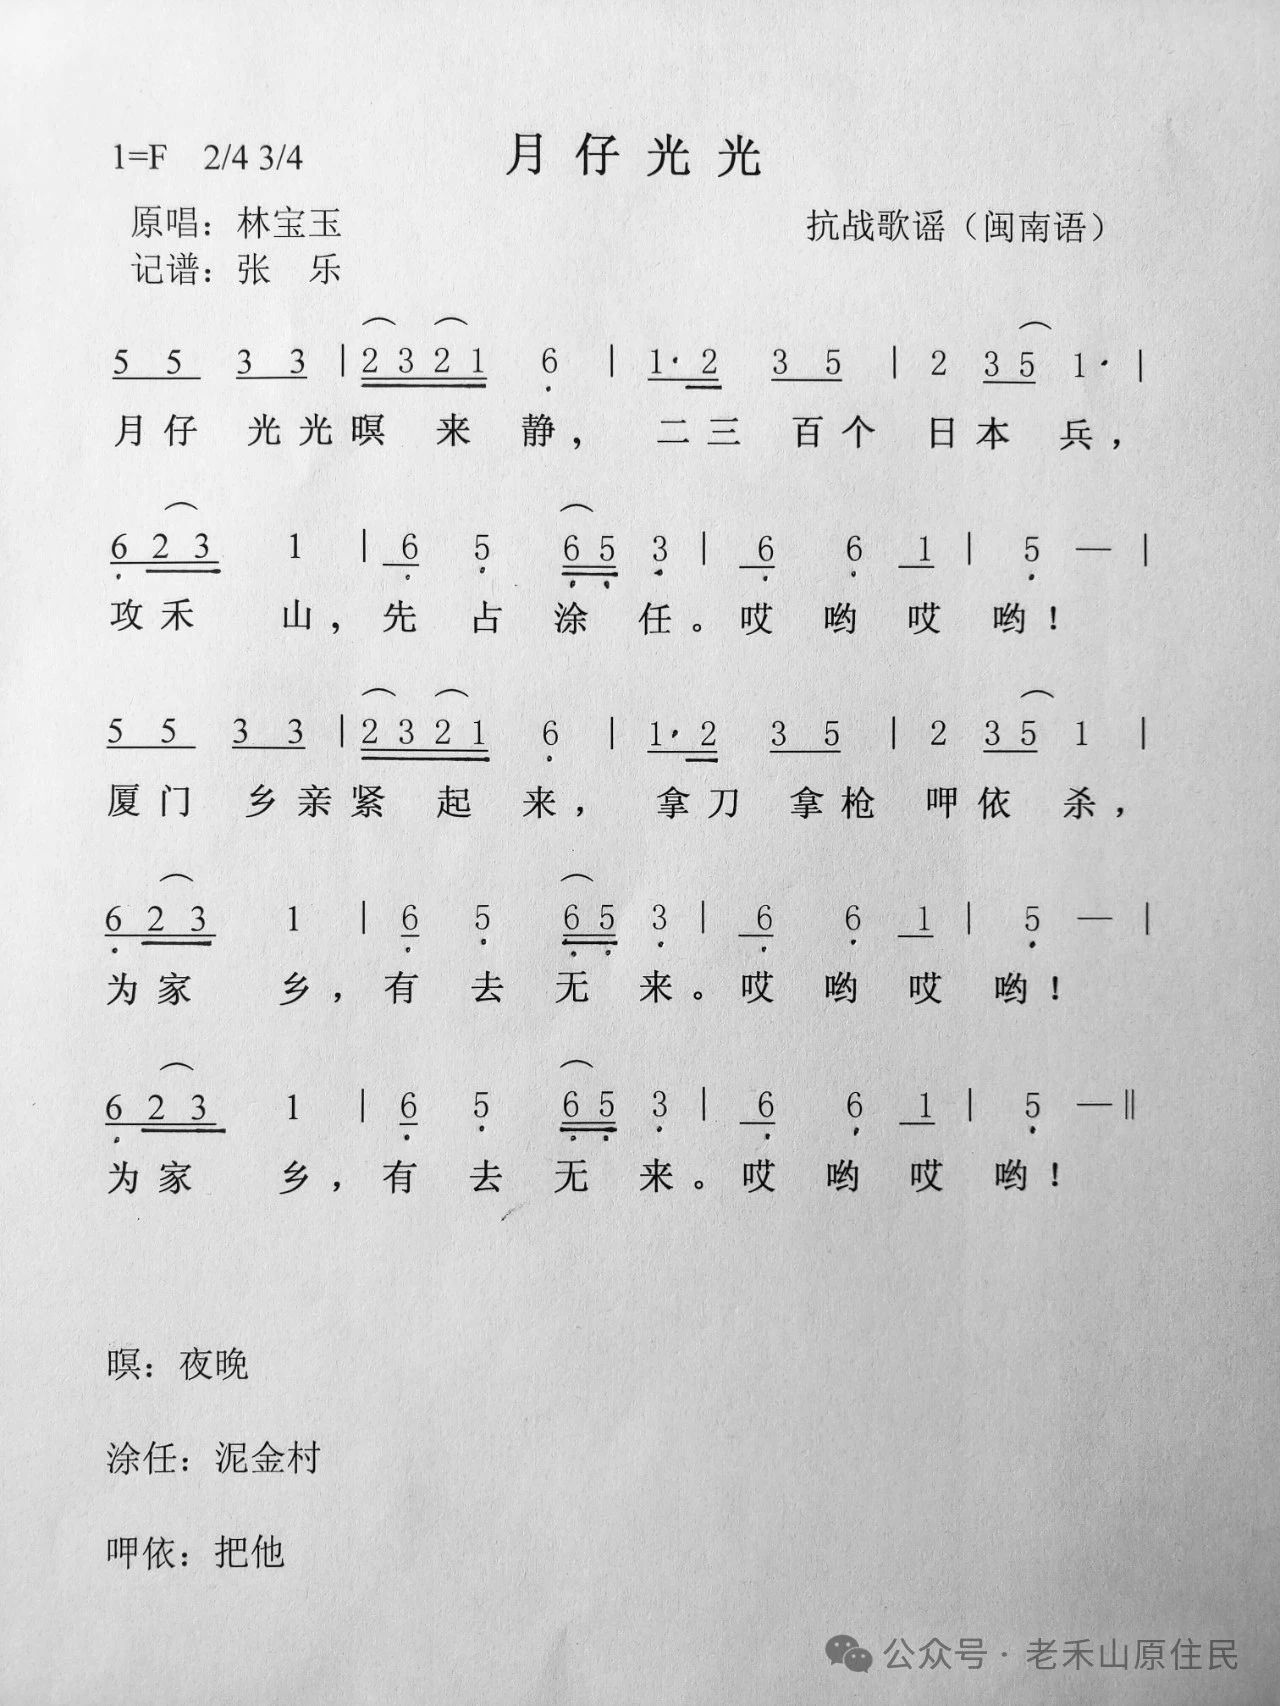 月仔光光
1=F 2/4 3/4
原唱：林宝玉
抗战歌谣（闽南语）
记谱：张 乐
5 5 3 3 | 2 3 2 1 6 | 1· 2 3 5 | 2 3 5 1· |
月仔 光光暝 来 静， 二三 百个 日本 兵，
6 2 3 1 | 6 5 6 5 3 | 6 6 1 | 5 — |
攻禾 山，先 占 涂 任。哎 哟 哎 哟！
5 5 3 3 | 2 3 2 1 6 | 1· 2 3 5 | 2 3 5 1 |
厦门 乡亲紧 起 来， 拿刀 拿枪 呷依 杀，
6 2 3 1 | 6 5 6 5 3 | 6 6 1 | 5 — |
为家 乡，有 去 无 来。哎 哟 哎 哟！
6 2 3 1 | 6 5 6 5 3 | 6 6 1 | 5 — ‖
为家 乡，有 去 无 来。哎 哟 哎 哟！
暝：夜晚
涂任：泥金村
呷依：把他
公众号·老禾山原住民